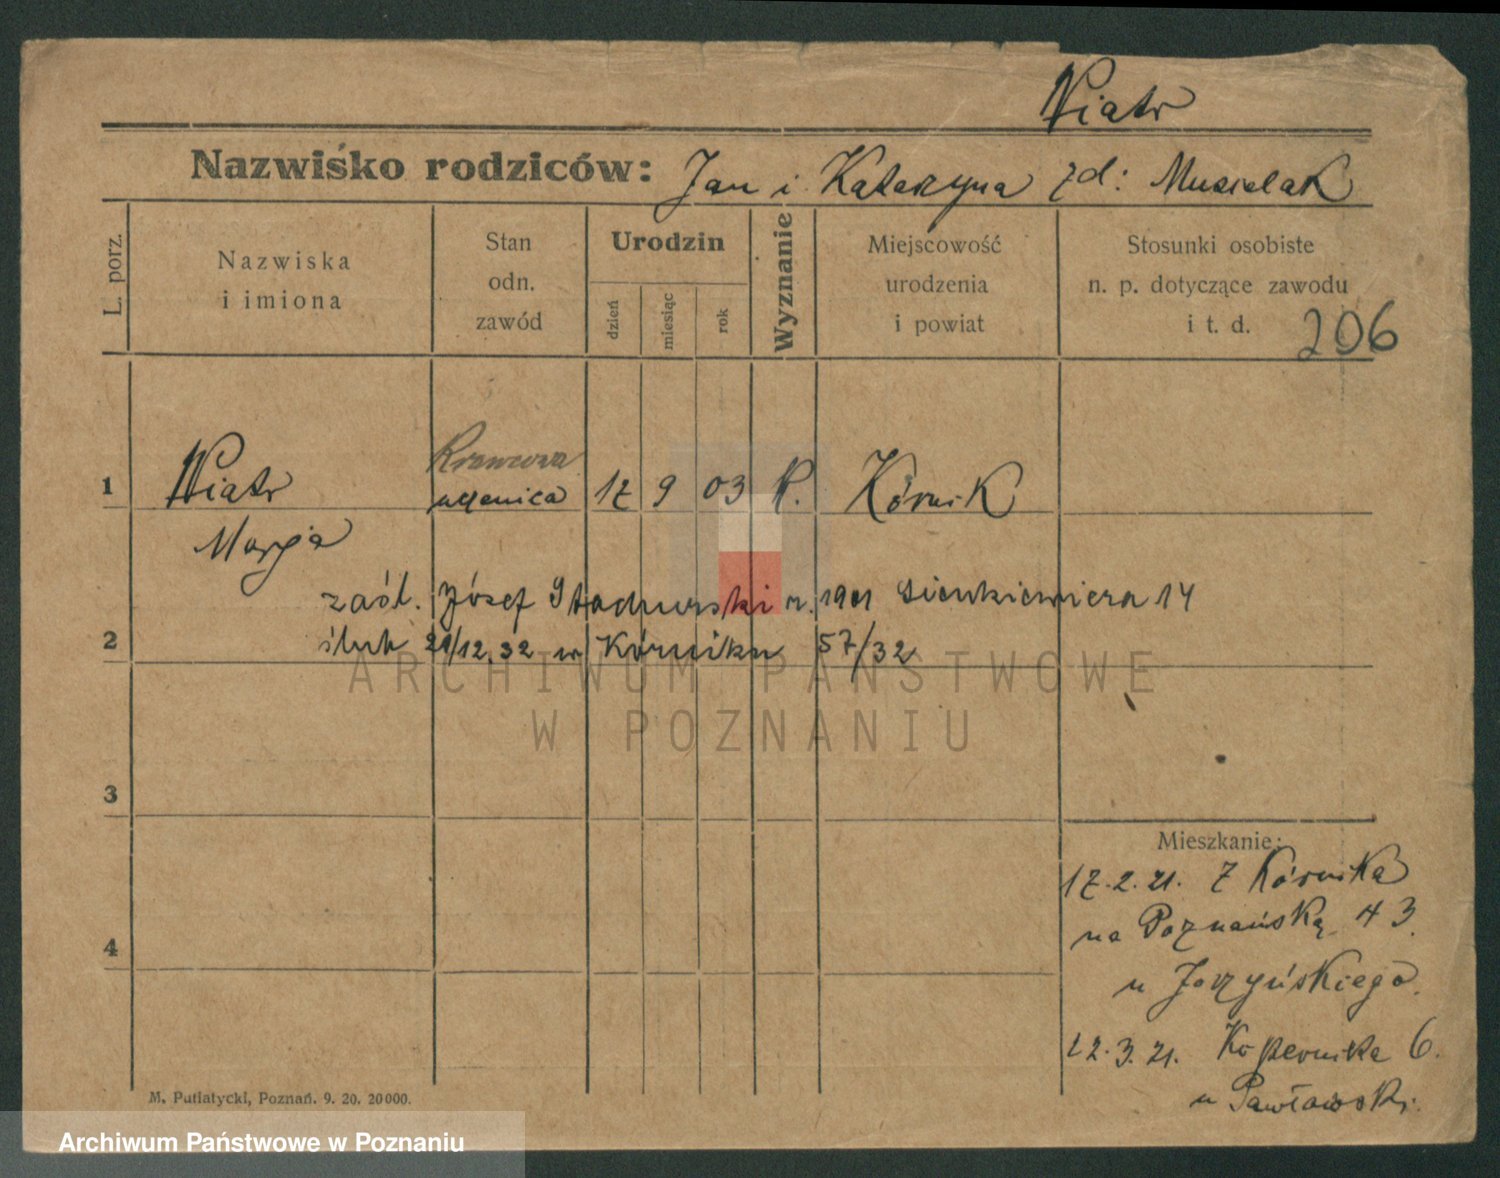 Wiatr
Nazwisko rodziców: Jan i Katarzyna zd: Musielak
L. porz.
Nazwiska
i imiona
Stan
odn.
zawód
Urodzin
dzień
miesiąc
rok
Wyznanie
Miejscowość
urodzenia
i powiat
Stosunki osobiste
n. p. dotyczące zawodu
i t. d.
206
Krawcowa
1 Wiatr uczenica 17 9 03 K. Kórnik
Marja
zaśl. Józef Stachurski r. 1901 Sienkiewicza 14
2 ślub 29/12.32 w Kórniku 57/32
ARCHIWUM PAŃSTWOWE
W POZNANIU
3
Mieszkanie:
17.2.21. z Kórnika
na Poznańską 43.
4
u Jarzyńskiego.
12.3.21. Kopernika 6.
u Pawłowski.
M. Putiatycki, Poznań. 9. 20. 20000.
Archiwum Państwowe w Poznaniu